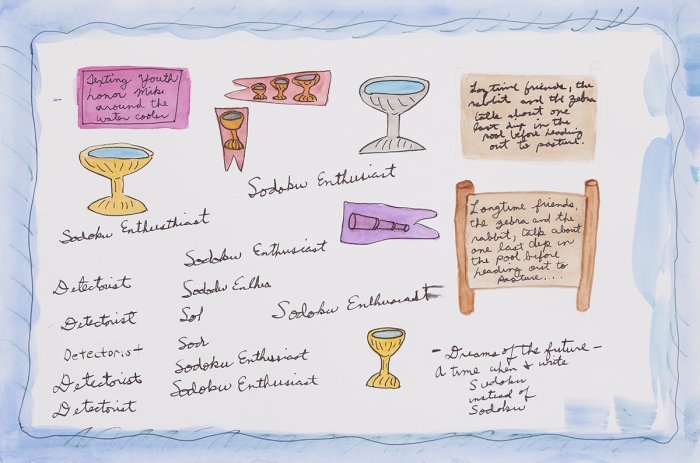 Texting Youth
honor Mike
around the
water cooler
Longtime friends, the
rabbit and the zebra
talk about one
last dip in the
pool before heading
out to pasture.
Sodoku Enthusiast
Sodoku Enthusthiast
Longtime friends,
the zebra and the
rabbit, talk about
one last dip in
the pool before
heading out to
pasture....
Sodoku Enthusiast
Detectorist
Sodoku Enthus
Sodoku Enthusiast
Detectorist
Sol
Detectorist
Sodr
Detectorist
Sodoku Enthusiast
Detectorist
Sodoku Enthusiast
- Dreams of the future -
A time when I write
Sudoku
instead of
Sodoku